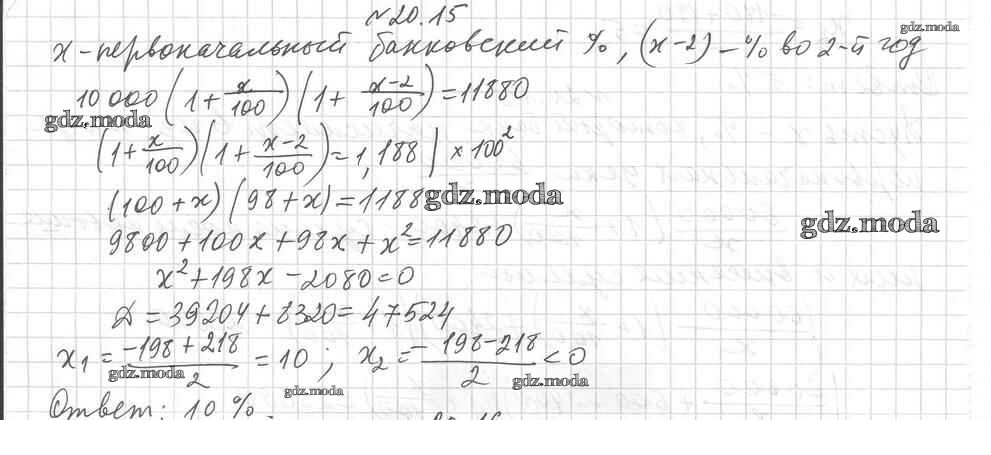 №20.15
gdz.moda
x - первоначальный банковский %, (x-2) - % во 2-й год
10 000 (1 + x/100) (1 + x-2/100) = 11880
gdz.moda
(1 + x/100) (1 + x-2/100) = 1,188 | × 100²
(100 + x) (98 + x) = 1188
gdz.moda
gdz.moda
9800 + 100x + 98x + x² = 11880
x² + 198x - 2080 = 0
Д = 39204 + 8320 = 47524
x₁ = -198 + 218/2 = 10 ; x₂ = - 198 - 218/2 < 0
gdz.moda
gdz.moda
gdz.moda
Ответ: 10 %.